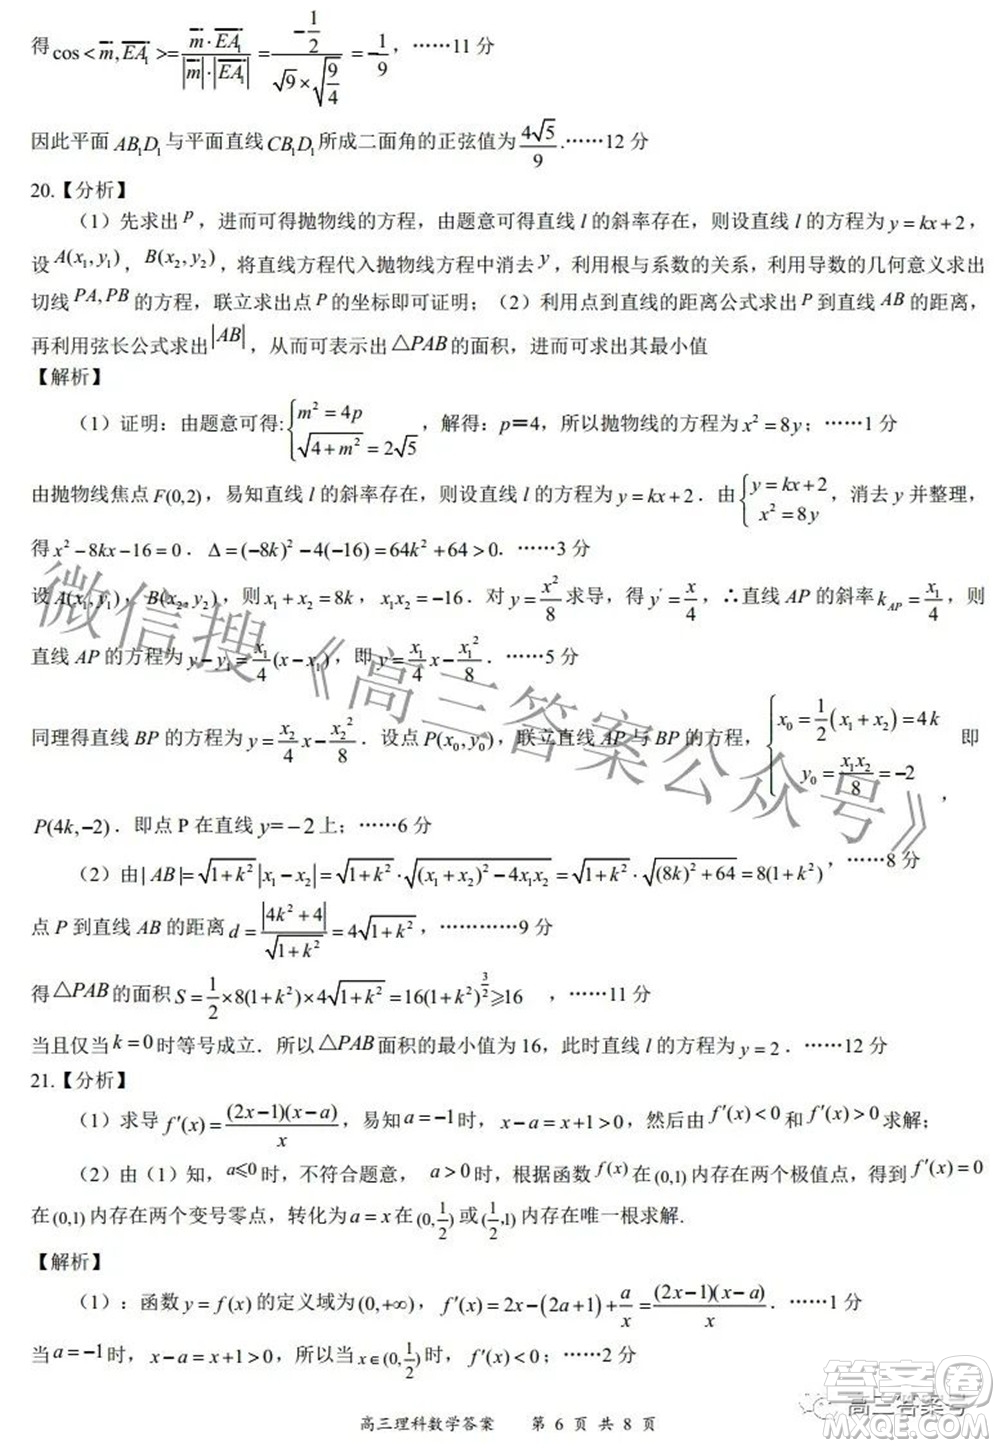 得 cos < m, EA₁ >= (m · EA₁)/(|m| · |EA₁|) = (-1/2)/(√9 × √(9/4)) = -1/9，……11 分
因此平面 AB₁D₁ 与平面直线 CB₁D₁ 所成二面角的正弦值为 4√5/9 .……12 分
20.【分析】
（1）先求出 p，进而可得抛物线的方程，由题意可得直线 l 的斜率存在，则设直线 l 的方程为 y = kx + 2，
设 A(x₁, y₁)，B(x₂, y₂)，将直线方程代入抛物线方程中消去 y，利用根与系数的关系，利用导数的几何意义求出
切线 PA, PB 的方程，联立求出点 P 的坐标即可证明；（2）利用点到直线的距离公式求出 P 到直线 AB 的距离，
再利用弦长公式求出 |AB|，从而可表示出 △PAB 的面积，进而可求出其最小值
【解析】
（1）证明：由题意可得: { m² = 4p, √(4 + m²) = 2√5，解得：p＝4，所以抛物线的方程为 x² = 8y；……1 分
由抛物线焦点 F(0,2)，易知直线 l 的斜率存在，则设直线 l 的方程为 y = kx + 2．由 { y = kx + 2, x² = 8y，消去 y 并整理，
得 x² - 8kx - 16 = 0．Δ = (-8k)² - 4(-16) = 64k² + 64 > 0．……3 分
设 A(x₁, y₁)，B(x₂, y₂)，则 x₁ + x₂ = 8k，x₁x₂ = -16．对 y = x²/8 求导，得 y' = x/4，∴直线 AP 的斜率 k_AP = x₁/4，则
直线 AP 的方程为 y - y₁ = x₁/4 (x - x₁)，即 y = x₁/4 x - x₁²/8．……5 分
同理得直线 BP 的方程为 y = x₂/4 x - x₂²/8．设点 P(x₀, y₀)，联立直线 AP 与 BP 的方程，{ x₀ = 1/2 (x₁ + x₂) = 4k, y₀ = x₁x₂/8 = -2，即
P(4k, -2)．即点 P 在直线 y= - 2 上；……6 分
（2）由 | AB |= √(1 + k²) |x₁ - x₂| = √(1 + k²) · √((x₁ + x₂)² - 4x₁x₂) = √(1 + k²) · √((8k)² + 64) = 8(1 + k²)，……8 分
点 P 到直线 AB 的距离 d = |4k² + 4|/√(1 + k²) = 4√(1 + k²)，…………9 分
得 △PAB 的面积 S = 1/2 × 8(1 + k²) × 4√(1 + k²) = 16(1 + k²)^(3/2) ⩾ 16，……11 分
当且仅当 k = 0 时等号成立．所以 △PAB 面积的最小值为 16，此时直线 l 的方程为 y = 2．……12 分
21.【分析】
（1）求导 f′(x) = (2x - 1)(x - a)/x，易知 a = -1 时，x - a = x + 1 > 0，然后由 f′(x) < 0 和 f′(x) > 0 求解；
（2）由（1）知，a⩽0 时，不符合题意， a > 0 时，根据函数 f(x) 在 (0,1) 内存在两个极值点，得到 f′(x) = 0
在 (0,1) 内存在两个变号零点，转化为 a = x 在 (0, 1/2) 或 (1/2, 1) 内存在唯一根求解.
【解析】
（1）：函数 y = f(x) 的定义域为 (0, +∞)，f′(x) = 2x - (2a + 1) + a/x = (2x - 1)(x - a)/x．……1 分
当 a = -1 时，x - a = x + 1 > 0，所以当 x ∈ (0, 1/2) 时，f′(x) < 0；……2 分
高三理科数学答案 第 6 页 共 8 页
微信搜《高三答案公众号》
高三答案号
答案圈
MXQE.COM